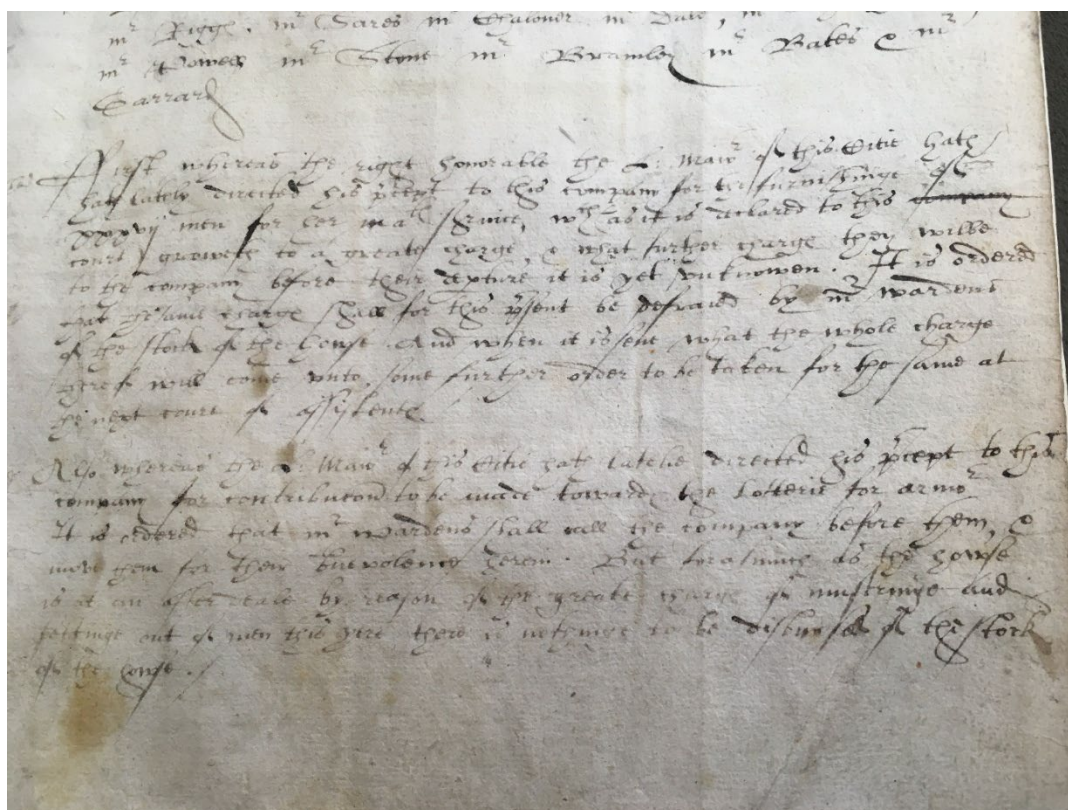 mr Rigge, mr Sares mr Chaloner mr Dale, m
mr Bowen mr Stone mr Bramley mr Bates & mr
Garrard
First whereas the right honorable the L: Maior of this Citie hath
hath latelie directed his precept to this company for the furnishinge of
xxxvij men for her mats service, wch as it is declared to this company
court groweth to a greate charge, & what further charge they wilbe
to the company before their depture it is yet vnknowen. It is ordered
that the same charge shall for this psent be defraied by mr wardens
of the stock of the howse. And when it is sene what the whole charge
thereof will come vnto, some further order to be taken for the same at
the next court of assistents
Also whereas the L: Maior of this Citie hath latelie directed his pcept to this
company for contribution to be made towards the Lotterie for armor
It is ordered that mr wardens shall call the company before them, &
move them for their benevolence herein. But forasmuch as the howse
is at an after deale by reason of the greate charge of mustringe and
settinge out of men this yere there is nothinge to be disbursed of the stock
of the howse.